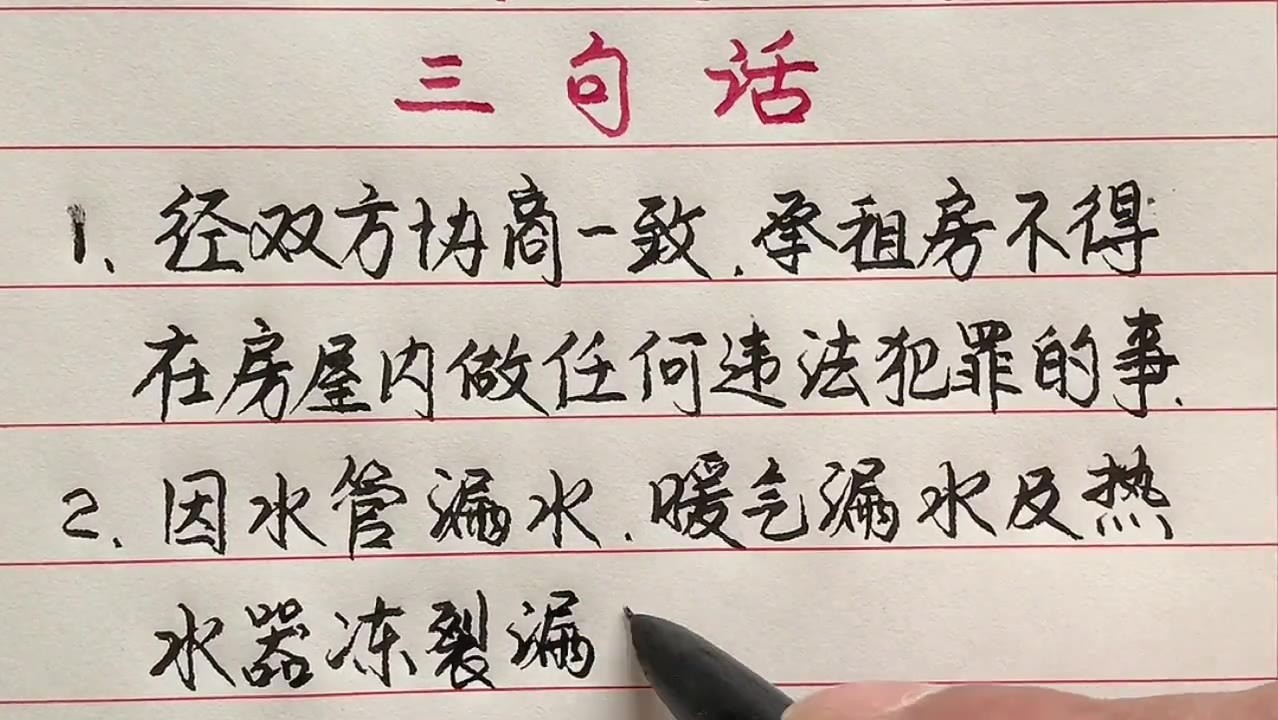 三句话
1、经双方协商一致，承租房不得
在房屋内做任何违法犯罪的事.
2、因水管漏水，暖气漏水及热
水器冻裂漏